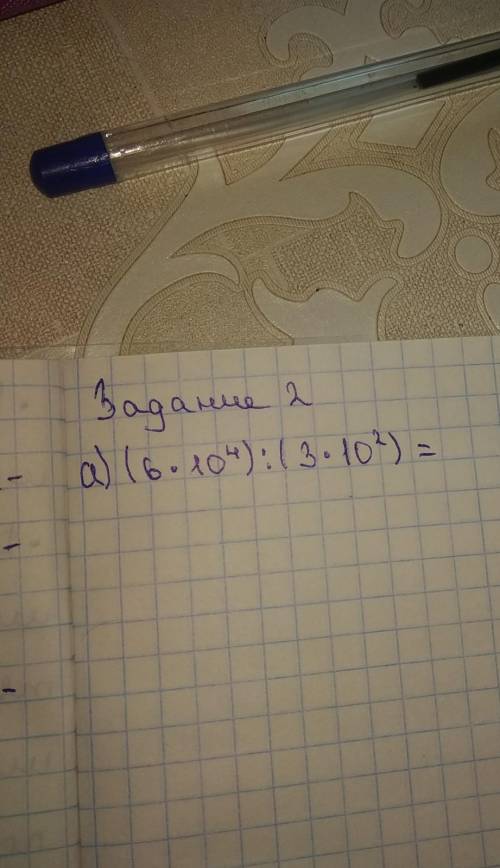 Задание 2
а) (6·10⁴):(3·10²)=